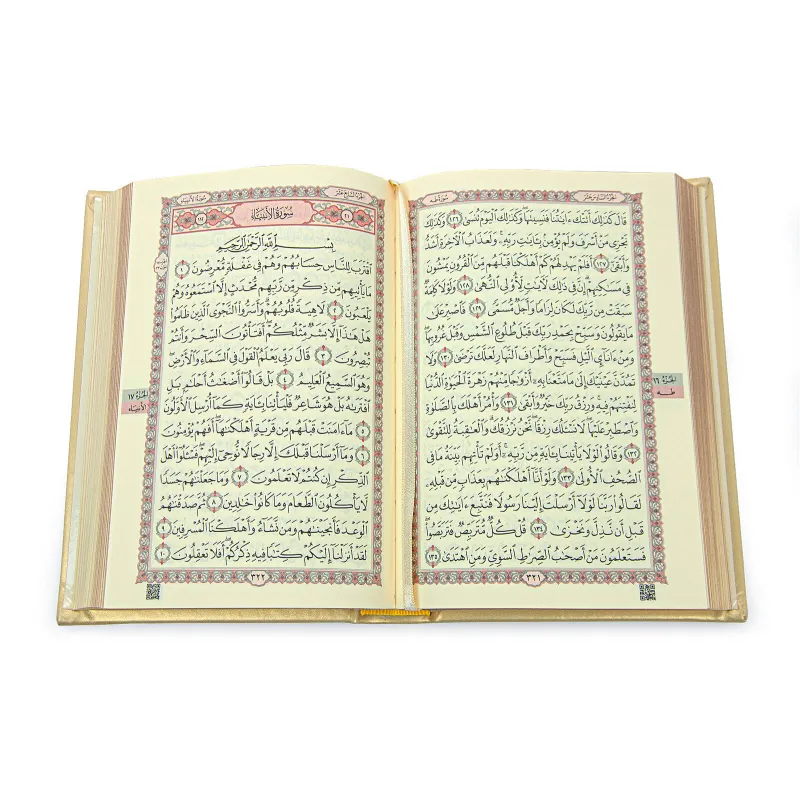 الجزء السادس عشر سورة طه
قَالَ كَذَٰلِكَ أَتَتْكَ ءَايَٰتُنَا فَنَسِيتَهَا ۖ وَكَذَٰلِكَ ٱلْيَوْمَ تُنسَىٰ ١٢٦ وَكَذَٰلِكَ
نَجْزِى مَنْ أَسْرَفَ وَلَمْ يُؤْمِنۢ بِـَٔايَٰتِ رَبِّهِۦ ۚ وَلَعَذَابُ ٱلْءَاخِرَةِ أَشَدُّ
وَأَبْقَىٰٓ ١٢٧ أَفَلَمْ يَهْدِ لَهُمْ كَمْ أَهْلَكْنَا قَبْلَهُم مِّنَ ٱلْقُرُونِ يَمْشُونَ
فِى مَسَٰكِنِهِمْ ۗ إِنَّ فِى ذَٰلِكَ لَءَايَٰتٍ لِّأُو۟لِى ٱلنُّهَىٰ ١٢٨ وَلَوْلَا كَلِمَةٌ
سَبَقَتْ مِن رَّبِّكَ لَكَانَ لِزَامًا وَأَجَلٌ مُّسَمًّى ١٢٩ فَٱصْبِرْ عَلَىٰ
مَا يَقُولُونَ وَسَبِّحْ بِحَمْدِ رَبِّكَ قَبْلَ طُلُوعِ ٱلشَّمْسِ وَقَبْلَ غُرُوبِهَا ۖ
وَمِنْ ءَانَآئِ ٱلَّيْلِ فَسَبِّحْ وَأَطْرَافَ ٱلنَّهَارِ لَعَلَّكَ تَرْضَىٰ ١٣٠ وَلَا
تَمُدَّنَّ عَيْنَيْكَ إِلَىٰ مَا مَتَّعْنَا بِهِۦٓ أَزْوَٰجًا مِّنْهُمْ زَهْرَةَ ٱلْحَيَوٰةِ ٱلدُّنْيَا
لِنَفْتِنَهُمْ فِيهِ ۚ وَرِزْقُ رَبِّكَ خَيْرٌ وَأَبْقَىٰ ١٣١ وَأْمُرْ أَهْلَكَ بِٱلصَّلَوٰةِ
وَٱصْطَبِرْ عَلَيْهَا ۖ لَا نَسْـَٔلُكَ رِزْقًا ۖ نَّحْنُ نَرْزُقُكَ ۗ وَٱلْعَٰقِبَةُ لِلتَّقْوَىٰ
١٣٢ وَقَالُوا۟ لَوْلَا يَأْتِينَا بِـَٔايَةٍ مِّن رَّبِّهِۦٓ ۚ أَوَلَمْ تَأْتِهِم بَيِّنَةُ مَا فِى
ٱلصُّحُفِ ٱلْأُولَىٰ ١٣٣ وَلَوْ أَنَّآ أَهْلَكْنَٰهُم بِعَذَابٍ مِّن قَبْلِهِۦ
لَقَالُوا۟ رَبَّنَا لَوْلَآ أَرْسَلْتَ إِلَيْنَا رَسُولًا فَنَتَّبِعَ ءَايَٰتِكَ مِن
قَبْلِ أَن نَّذِلَّ وَنَخْزَىٰ ١٣٤ قُلْ كُلٌّ مُّتَرَبِّصٌ فَتَرَبَّصُوا۟ ۖ
فَسَتَعْلَمُونَ مَنْ أَصْحَٰبُ ٱلصِّرَٰطِ ٱلسَّوِىِّ وَمَنِ ٱهْتَدَىٰ ١٣٥
٣٢١
الجزء ١٦
طه
الجزء السابع عشر سورة الأنبياء
٢١ سورة الأنبياء ١١٢
بِسْمِ ٱللَّهِ ٱلرَّحْمَٰنِ ٱلرَّحِيمِ
ٱقْتَرَبَ لِلنَّاسِ حِسَابُهُمْ وَهُمْ فِى غَفْلَةٍ مُّعْرِضُونَ ١
مَا يَأْتِيهِم مِّن ذِكْرٍ مِّن رَّبِّهِم مُّحْدَثٍ إِلَّا ٱسْتَمَعُوهُ وَهُمْ
يَلْعَبُونَ ٢ لَاهِيَةً قُلُوبُهُمْ ۗ وَأَسَرُّوا۟ ٱلنَّجْوَى ٱلَّذِينَ ظَلَمُوا۟
هَلْ هَٰذَآ إِلَّا بَشَرٌ مِّثْلُكُمْ ۖ أَفَتَأْتُونَ ٱلسِّحْرَ وَأَنتُمْ
تُبْصِرُونَ ٣ قَالَ رَبِّى يَعْلَمُ ٱلْقَوْلَ فِى ٱلسَّمَآءِ وَٱلْأَرْضِ ۖ
وَهُوَ ٱلسَّمِيعُ ٱلْعَلِيمُ ٤ بَلْ قَالُوٓا۟ أَضْغَٰثُ أَحْلَٰمٍۭ بَلِ
ٱفْتَرَىٰهُ بَلْ هُوَ شَاعِرٌ فَلْيَأْتِنَا بِـَٔايَةٍ كَمَآ أُرْسِلَ ٱلْأَوَّلُونَ
٥ مَآ ءَامَنَتْ قَبْلَهُم مِّن قَرْيَةٍ أَهْلَكْنَٰهَآ ۖ أَفَهُمْ يُؤْمِنُونَ
٦ وَمَآ أَرْسَلْنَا قَبْلَكَ إِلَّا رِجَالًا نُّوحِىٓ إِلَيْهِمْ ۖ فَسْـَٔلُوٓا۟ أَهْلَ
ٱلذِّكْرِ إِن كُنتُمْ لَا تَعْلَمُونَ ٧ وَمَا جَعَلْنَٰهُمْ جَسَدًا
لَّا يَأْكُلُونَ ٱلطَّعَامَ وَمَا كَانُوا۟ خَٰلِدِينَ ٨ ثُمَّ صَدَقْنَٰهُمُ
ٱلْوَعْدَ فَأَنجَيْنَٰهُمْ وَمَن نَّشَآءُ وَأَهْلَكْنَا ٱلْمُسْرِفِينَ ٩
لَقَدْ أَنزَلْنَآ إِلَيْكُمْ كِتَٰبًا فِيهِ ذِكْرُكُمْ ۖ أَفَلَا تَعْقِلُونَ ١٠
٣٢٢
الجزء ١٧
الأنبياء